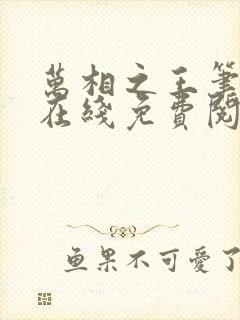 萬相之王筆
在綫免費閱
鱼果不可愛了